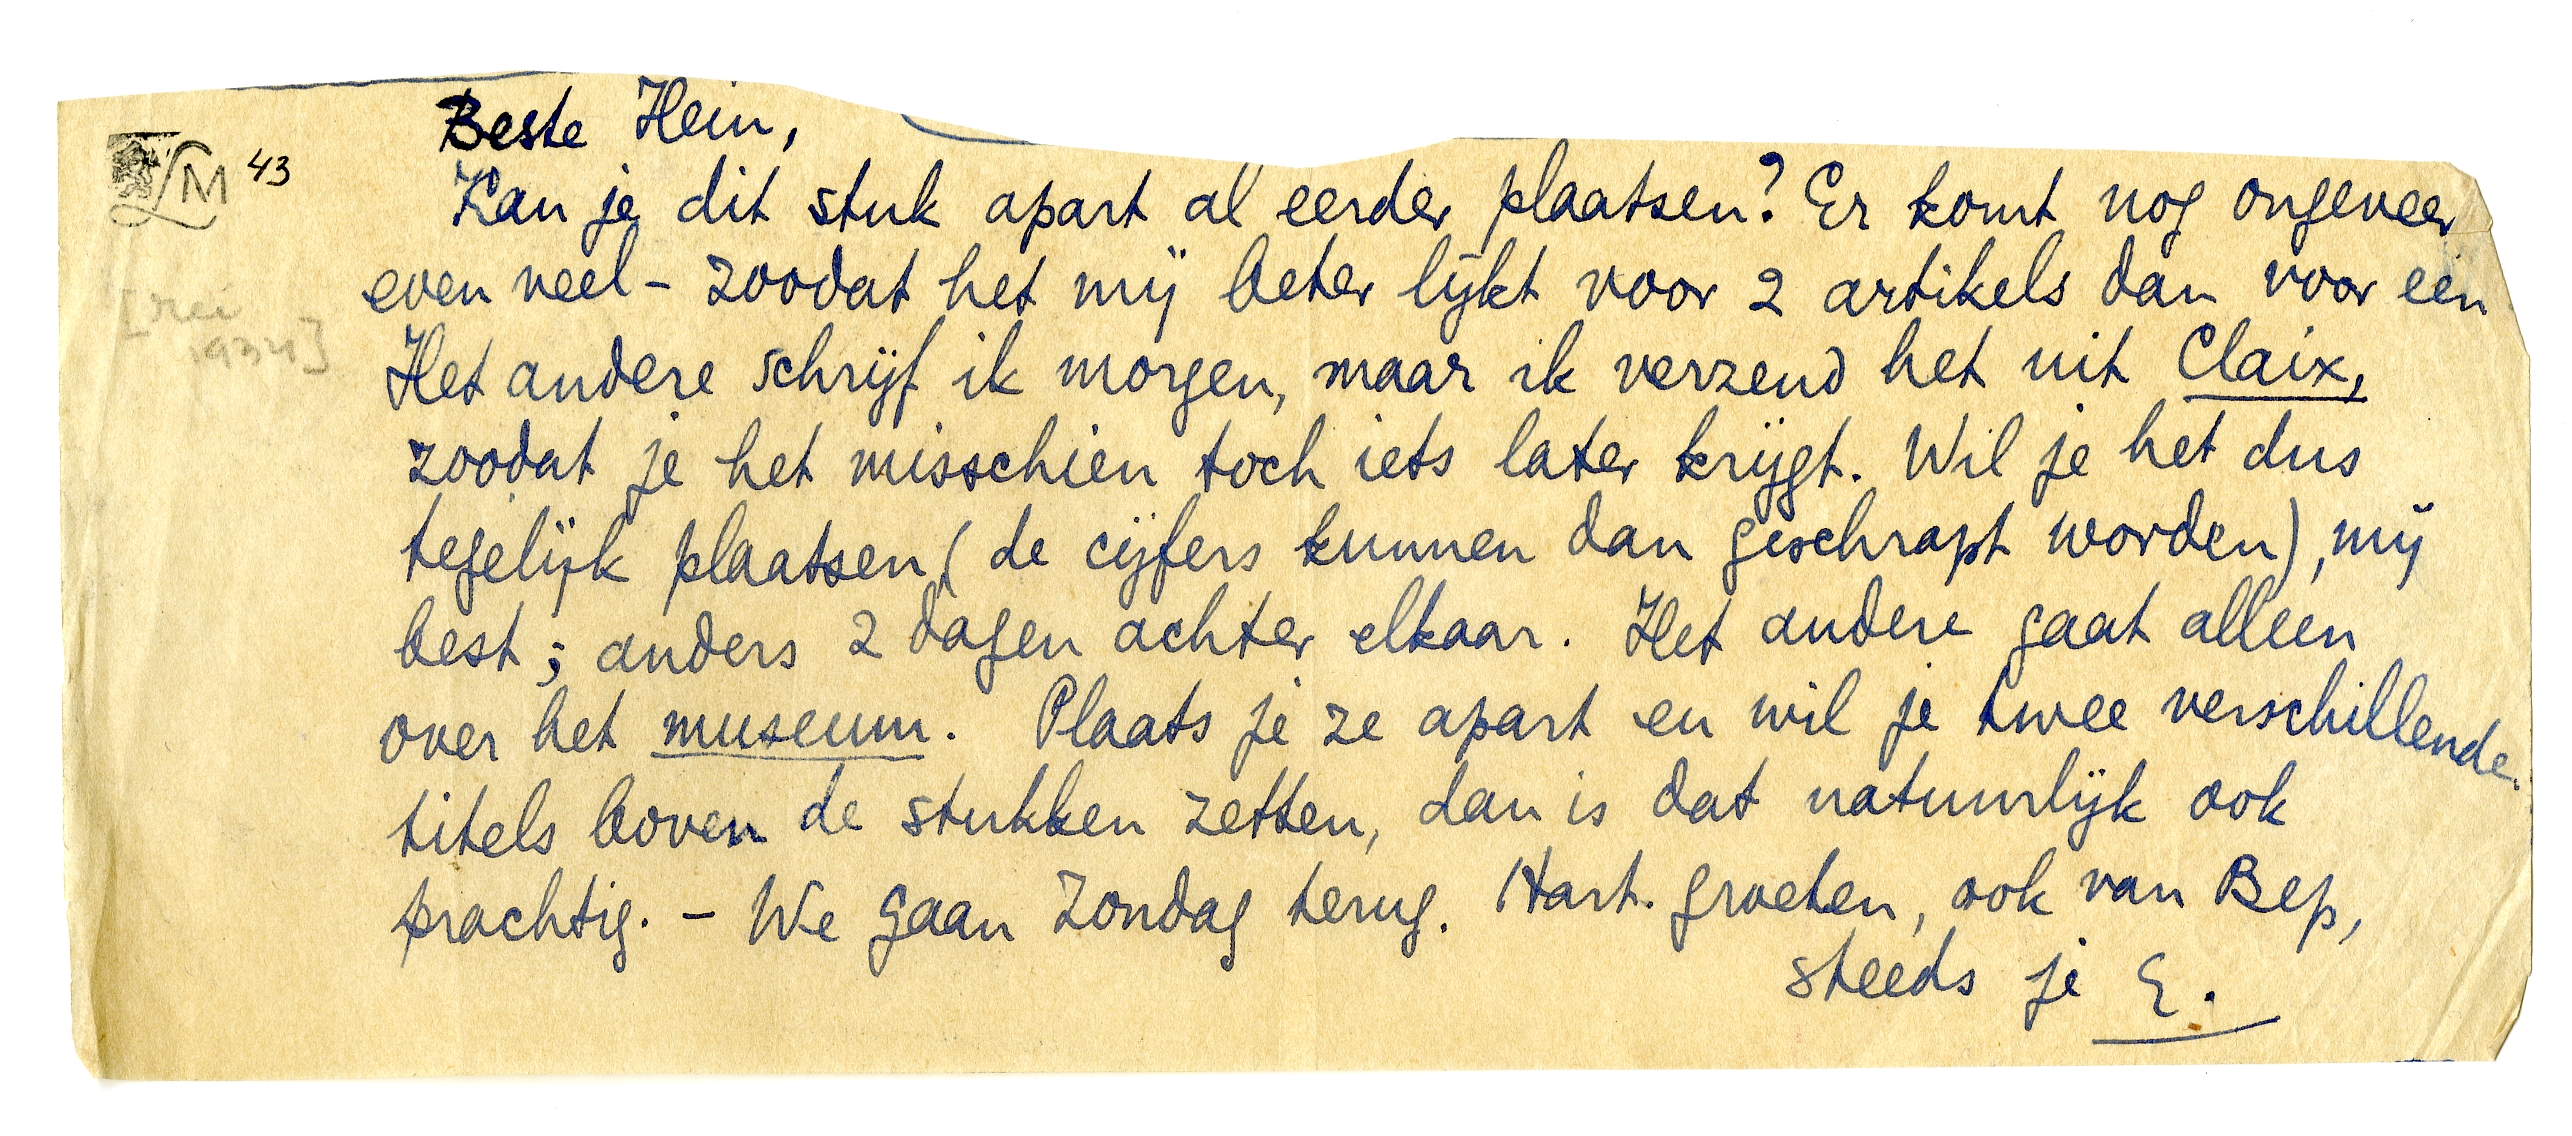 Beste Hein,
LM 43
Kan je dit stuk apart al eerder plaatsen? Er komt nog ongeveer
even veel – zoodat het mij beter lijkt voor 2 artikels dan voor een
[mei
1934]
Het andere schrijf ik morgen, maar ik verzend het uit Claix,
zoodat je het misschien toch iets later krijgt. Wil je het dus
tegelijk plaatsen (de cijfers kunnen dan geschrapt worden), mij
best; anders 2 dagen achter elkaar. Het andere gaat alleen
over het museum. Plaats je ze apart en wil je twee verschillende
titels boven de stukken zetten, dan is dat natuurlijk ook
prachtig. – We gaan Zondag terug. Hart. groeten, ook van Bep,
steeds je E.